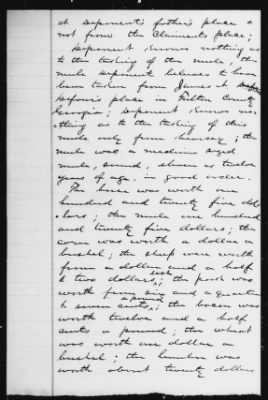 at deponent's father's place &
not from the Claimants place;
Deponent knows nothing as
to the taking of the mule; the
mule deponent believes to have
been taken from James A.
Defoor's place in Fulton County
Georgia; deponent knows no-
thing as to the taking of this
mule only from hearsay; the
mule was a medium sized
mule, sound, eleven or twelve
years of age, in good order.
The horse was worth one
hundred and twenty five dol-
lars; the mule one hundred
and twenty five dollars; the
corn was worth a dollar a
bushel; the sheep were worth
from a dollar and a half
to two dollars; the pork was
worth from six and a quarter
to seven cents a pound; the bacon was
worth twelve and a half
cents a pound; the wheat
was worth one dollar a
bushel; the lumber was
worth about twenty dollars